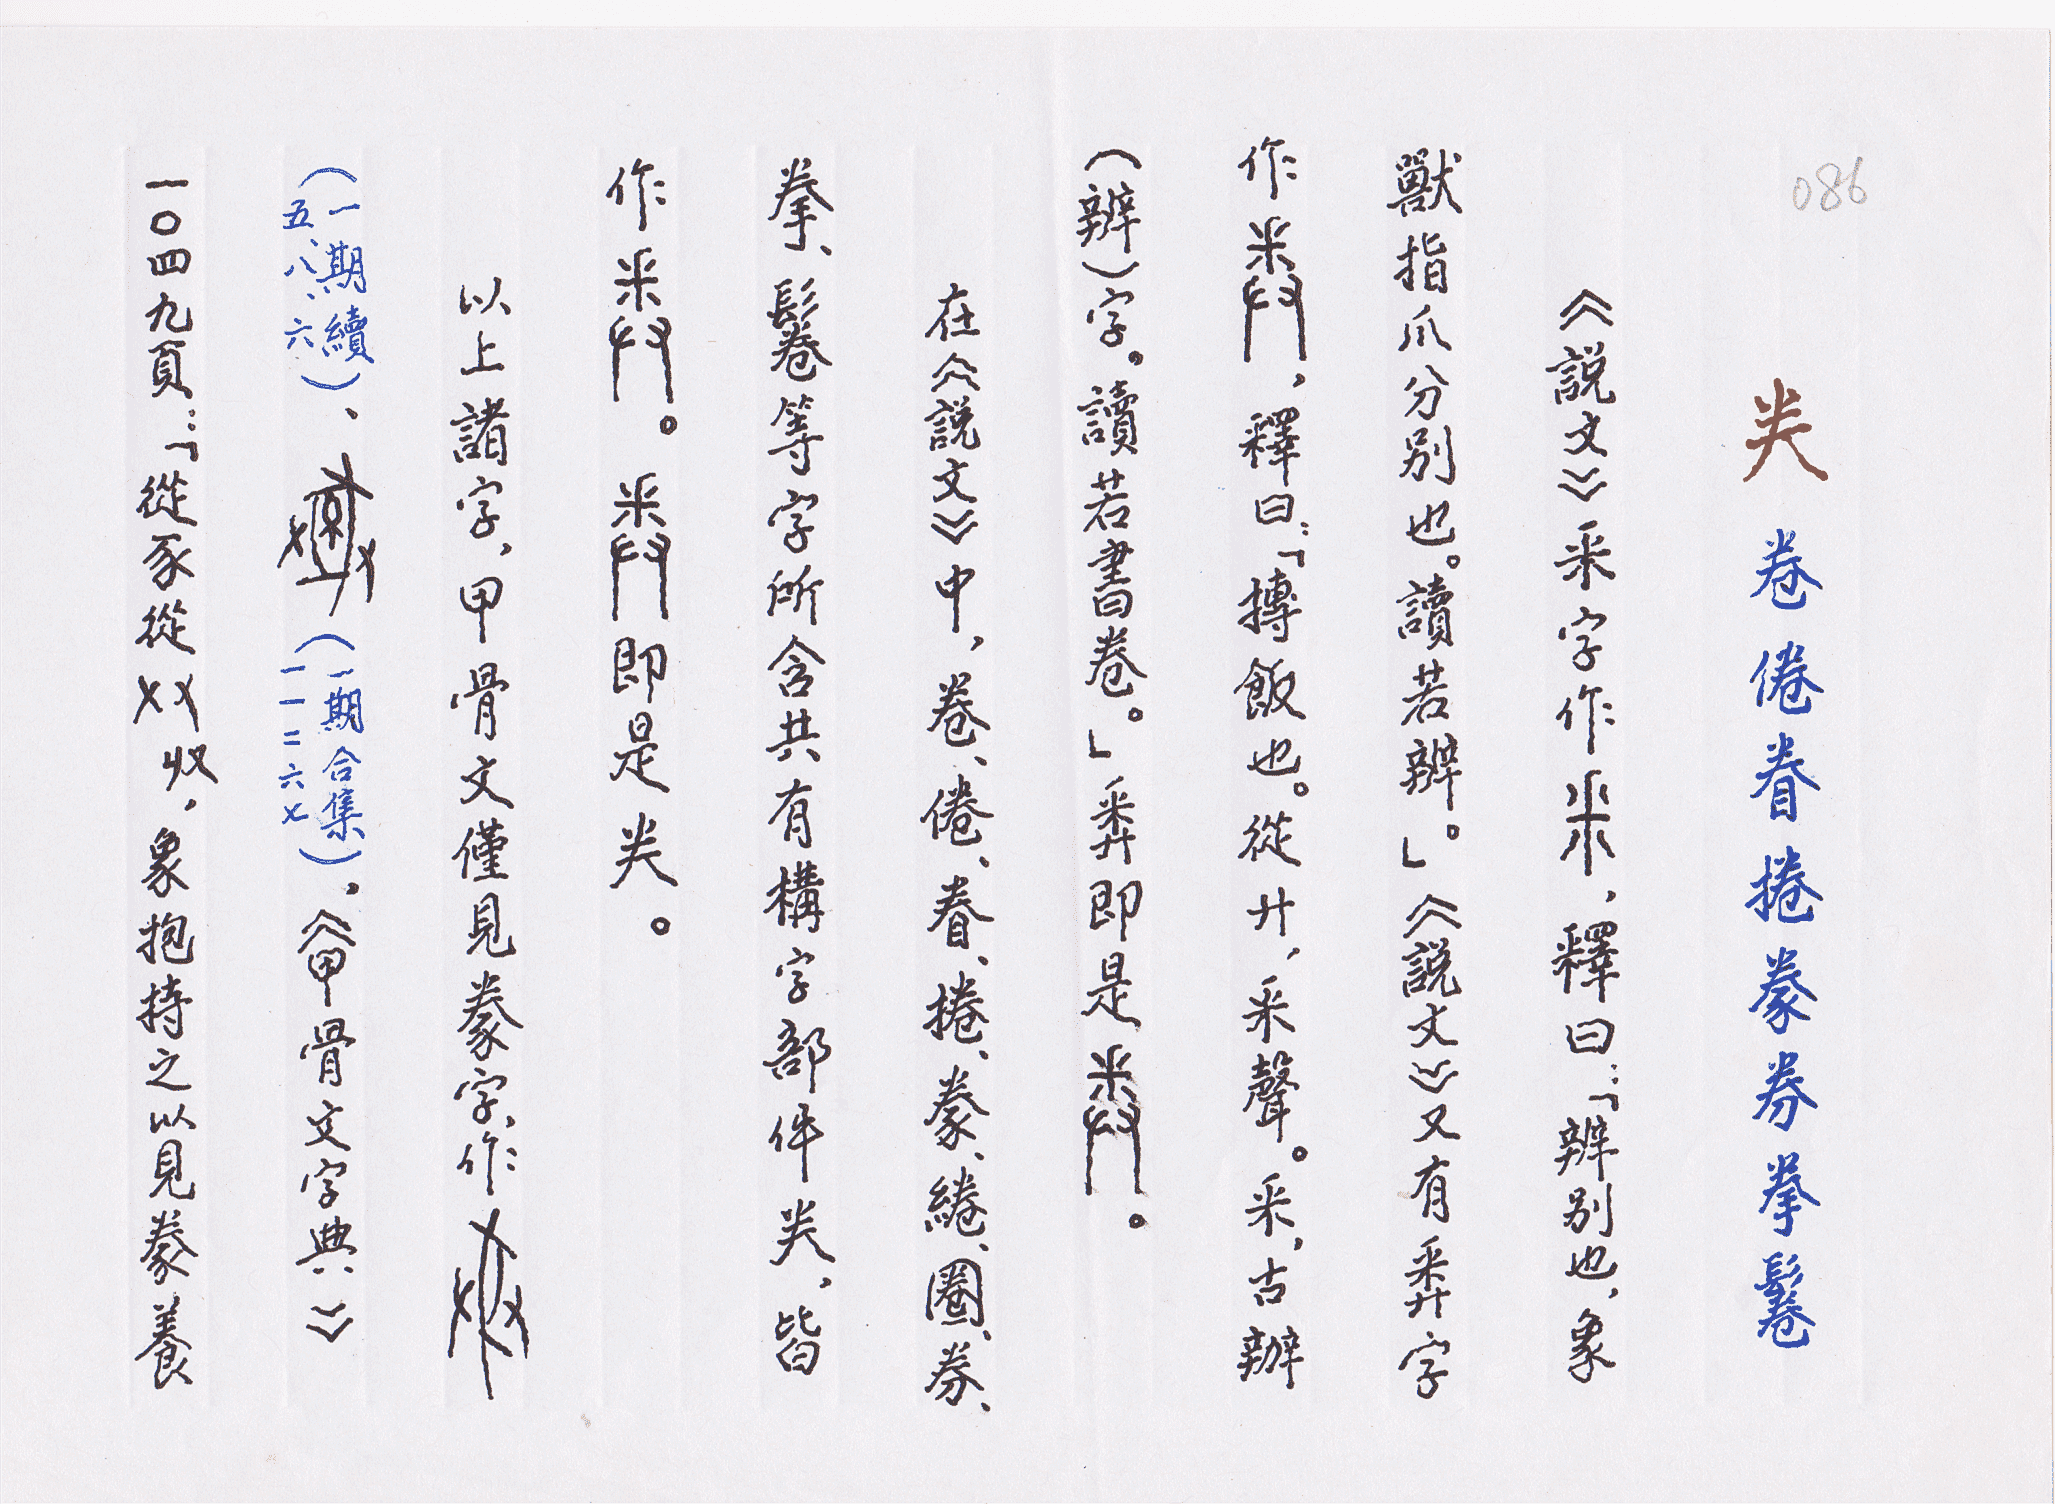 086
龹 卷倦眷捲豢券拳鬈
《說文》釆字作，釋曰：「辨別也，象
獸指爪分別也。讀若辨。」《說文》又有𢍏字
作，釋曰：「摶飯也。從廾，釆聲。釆，古辧
（辨）字。讀若書卷。」𢍏即是。
在《說文》中，卷、倦、眷、捲、豢、綣、圈、券、
拳、鬈等字所含共有構字部件龹，皆
作。即是龹。
以上諸字，甲骨文僅見豢字，作
（一期續五、八、六）、（一期合集一一二六七），《甲骨文字典》
一〇四九頁：「從豕從収，象抱持之以見豢養